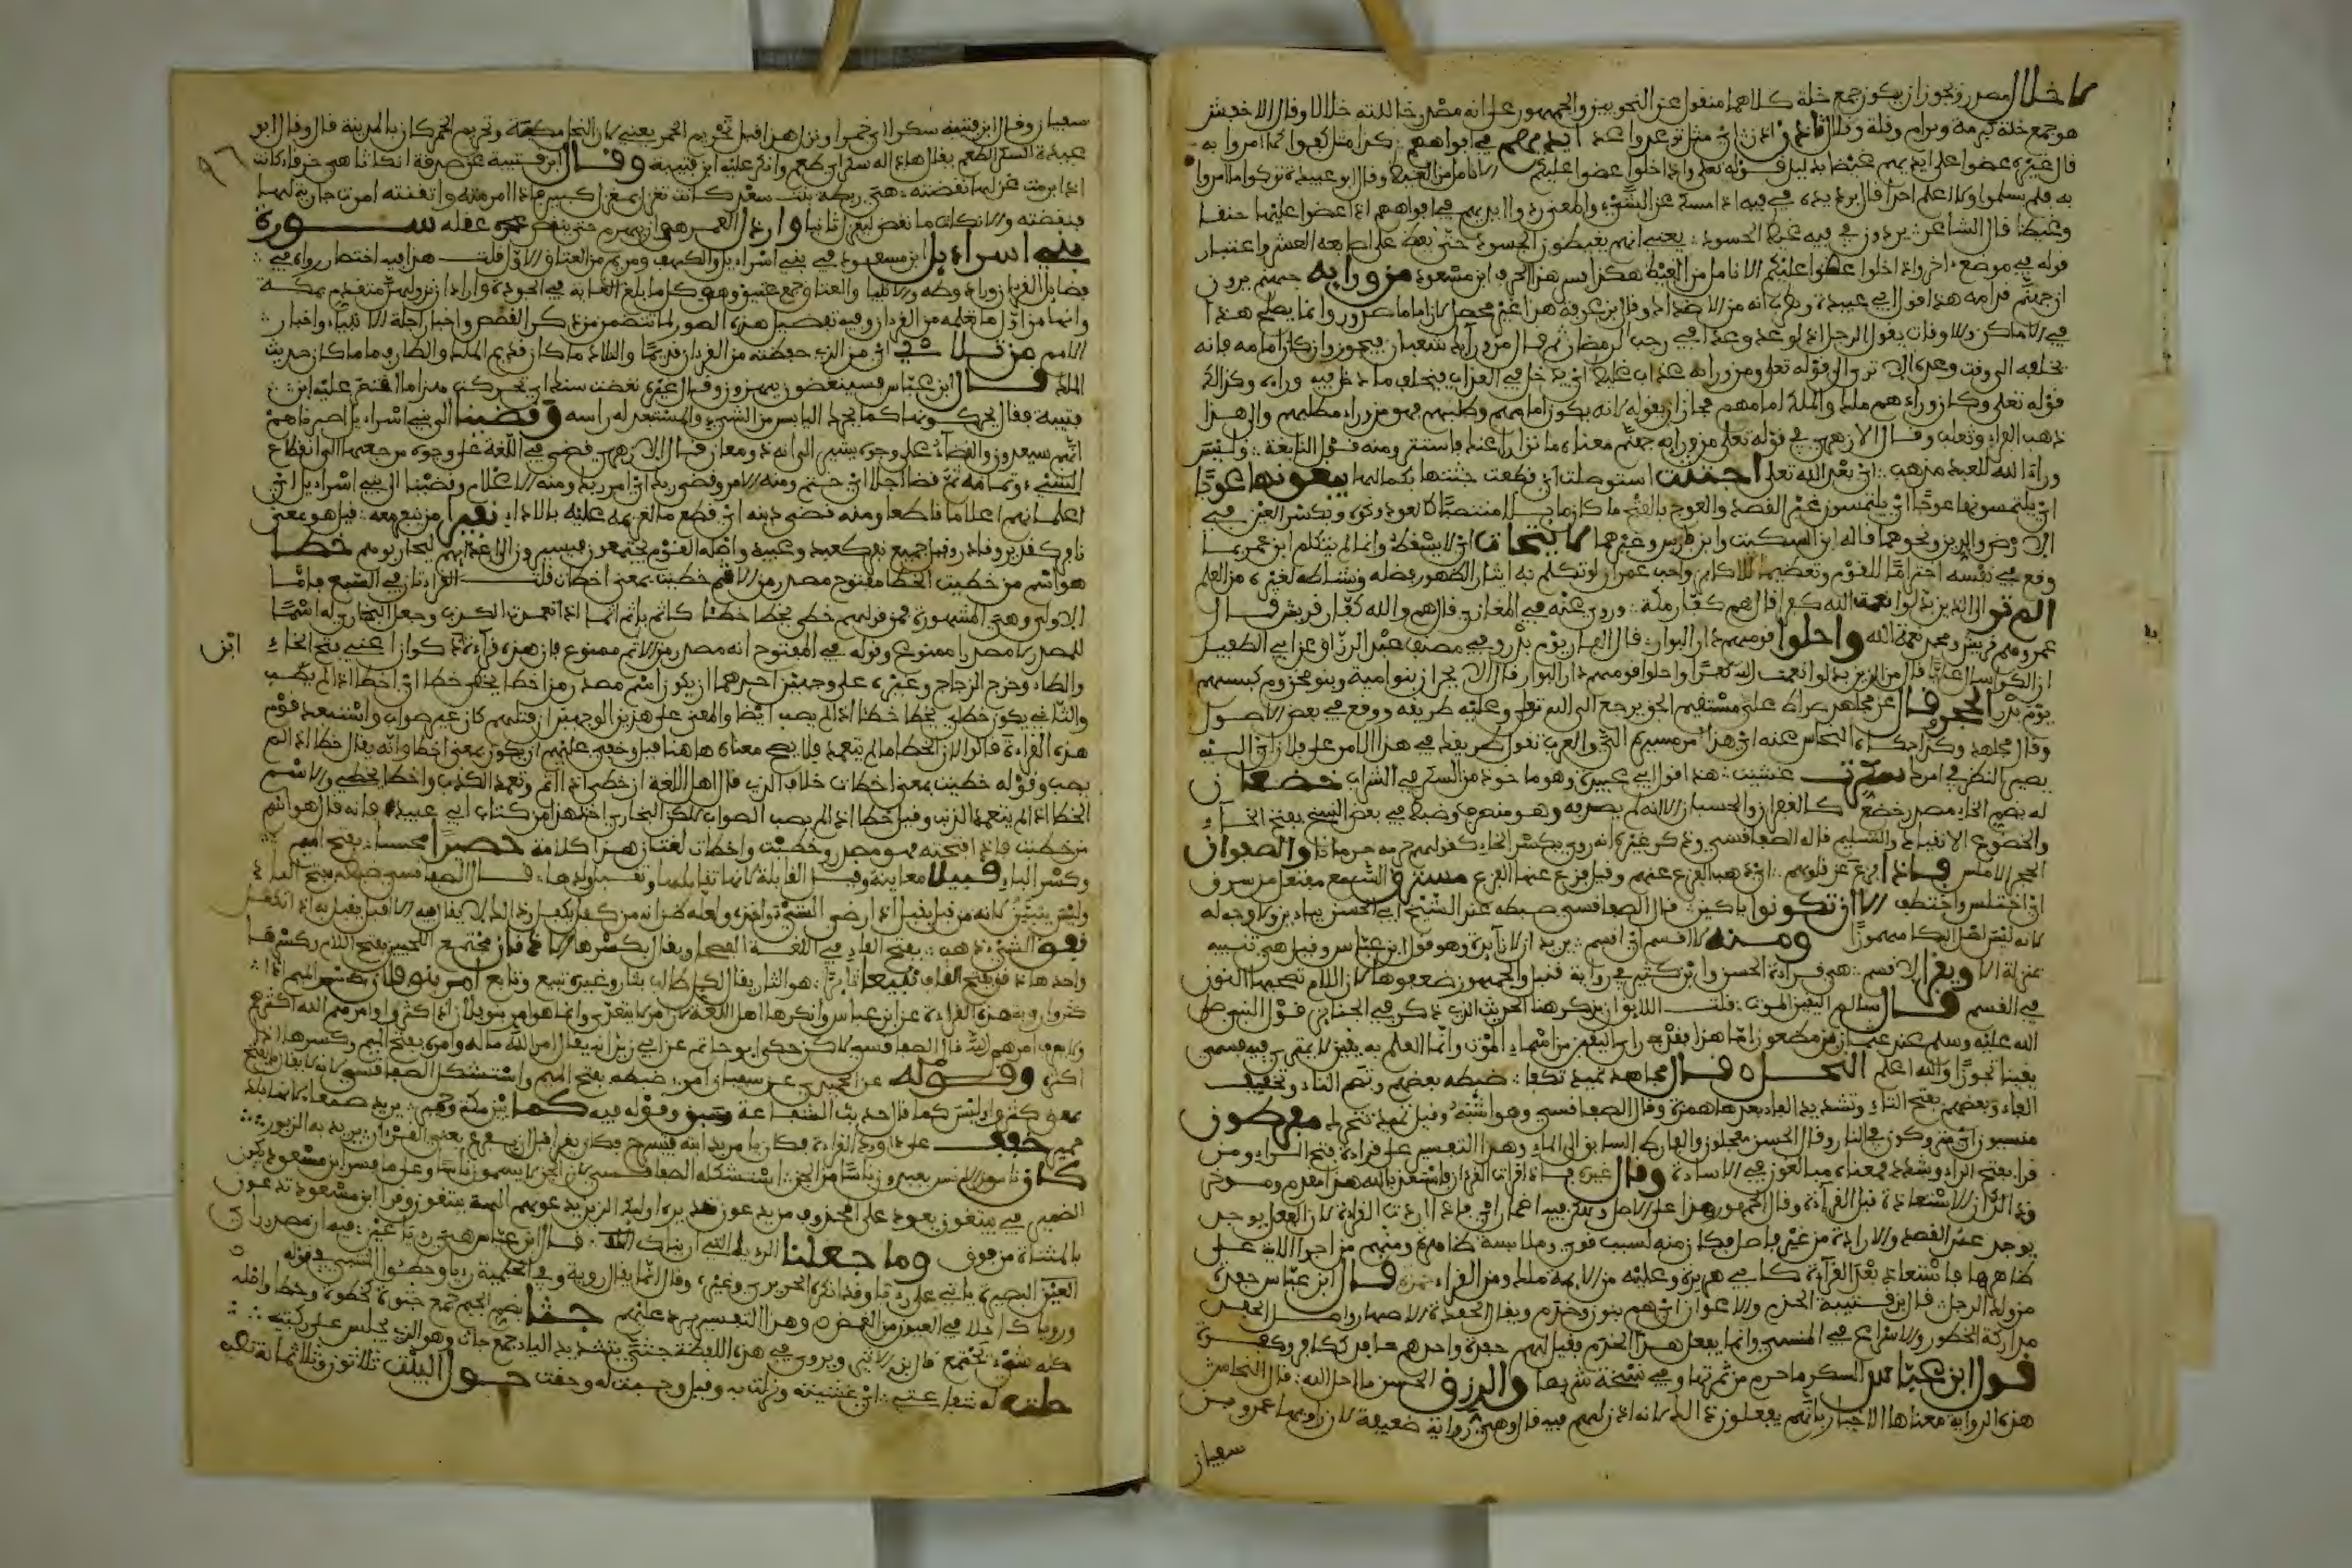 لا خلال مصدر ويجوز ان يكون جمع خلة كلاهما منقول عن النحويين والجمهور على انه مصدر خاللته خلالا وقال الاخفش
هو جمع خلة كبرمة وبرام وقلة وقلال فاذن واذن اي مثل توعد واعد ايديهم في افواههم كذا مثل كفوا عما امروا به
قال غيره عضوا على ايديهم غيظا بدليل قوله تعلى واذا خلوا عضوا عليكم الانامل من الغيظ وقال ابو عبيدة تركوا ما امروا
به فلم يسلموا ولا اعلم احدا قال يرد يده في فيه اذا امسك عن الشيء والمعنى ردوا ايديهم في افواههم اذا عضوا عليها حنقا
وغيظا قال الشاعر يردون في فيه غيظ الحسود يعني انهم يغيظون الحسود حتى يعض على اصابعه العشر واعتبار
قوله في موضع اخر واذا خلوا عضوا عليكم الانامل من الغيظ هكذا فسر هذا الحرف ابن مسعود من ورايه جهنم يرون
ان جهنم قدامه هذا قول ابي عبيدة وقطرب انه من الاضداد وقال ابن عرفة هذا غير محصل لان اماما ضد ورا وانما يصلح هذا
في الاماكن والاوقات يقول الرجل اذا وعد وعدا في رجب لرمضان ثم قال من ورايك شعبان فيجوز وان كان امامه فانه
يخلفه الى وقت وعده الا ترى الى قوله تعلى ومن ورايه عذاب غليظ اي يدخل في العذاب فيخلف ما دخل فيه وراءه وكذلك
قوله تعلى وكان وراءهم ملك والملك امامهم فجاز ان يقوله لانه يكون امامهم وطلبهم فهو من وراء مطلبهم والى هذا
ذهب الفراء وثعلب وقال الازهري في قوله تعلى من ورايه جهنم معناه ما توارى عنه فاستتر ومنه قول النابغة وليس
وراء الله للعبد مذهب اي بعد الله تعلى اجتثت استوصلت اي قطعت جثتها بكمالها يبغونها عوجا
اي يلتمسونها عوجا اي يلتمسون غير القصد والعوج بالفتح ما كان مايلا منتصبا كالعود ونحوه وبكسر العين في
الارض والدين ونحوهما قاله ابن السكيت وابن فارس وغيرهما لا يتحات اي لا يسقط وانما لم يتكلم ابن عمر بما
وقع في نفسه احتراما للقوم وتعظيما للاكابر واحب عمر ان لو تكلم به ايثارا لظهور فضله ونشاطه لغيره من العلم
الم تر الى الذين بدلوا نعمة الله كفرا قال هم كفار مكة وروي عنه في المغازي قال هم والله كفار قريش قال
عمرو هم قريش ومحمد نعمة الله واحلوا قومهم دار البوار قال النار يوم بدر وفي مصنف عبد الرزاق عن ابي الطفيل
ان ابن الكوا سال عليا قال من الذين بدلوا نعمت الله كفرا واحلوا قومهم دار البوار قال الافجران بنو امية وبنو مخزوم كبسهم
يوم بدر الحجر وقال عن مجاهد صراط علي مستقيم الحق يرجع الى الله تعلى وعليه طريقه ووقع في بعض الاصول
وقال مجاهد وكذا حكاه النحاس عنه اي هذا امر مسيرهم الي والعرب تقول طريقك في هذا الامر على فلان اي اليه
يصير النظر في امرك سكرت غشيت هذا قول ابي عبيدة وهو ماخوذ من السكر في الشراب خضعا ن
له بضم الخاء مصدر خضع كالغفران والحسبان الا انه لم يصرفه وهو منصرف وضبط في بعض النسخ بفتح الخاء
والخضوع الانقياد والتسليم قاله الصفاقسي وذكر غيره انه روي بكسر الخاء كقولهم حرمه حرمانا والصفوان
الحجر الاملس فاذا فزع عن قلوبهم اي ذهب الفزع عنهم وقيل فزع عنها الفزع مسترق السمع مفتعل من سرق
اي اختلس واختطف الا ان تكونوا باكين قال الصفاقسي ضبطه عند الشيخ ابي الحسن بيادين ولا وجه له
لانه ليس اصل البكا مهموزا ومنه لا اقسم اي اقسم يريد ان لا زايدة وهو قول ابن عباس وقيل هي تنبيه
بمنزلة الا ويقرا لاقسم هي قراءة الحسن وابن كثير في رواية قنبل والجمهور ضعفوها لان اللام تصحبها النون
في القسم قال سالم اليقين الموت قلت اللايق ان يذكر هنا الحديث الذي ذكر في الجنايز قول النبي صلى
الله عليه وسلم عند عثمان بن مظعون اما هذا فقد جاءه اليقين من اسماء الموت وانما العلم به يقين لا يمترى فيه فسمي
يقينا تجوزا والله اعلم النحل ه قال مجاهد تميد تكفا ضبطه بعضهم بضم التاء وتخفيف
الفاء وبعضهم بفتح التاء وتشديد الفاء بعدها همزة وقال الصفاقسي وهو اشبه وقيل تميد تتحرك مفرطون
منسيون اي متروكون في النار وقال الحسن معجلون والفارط السابق الى الماء وهذا التفسير على قراءة فتح الراء ومن
قرا بفتح الفاء وشدد فمعناه مبالغون في الاساءة وقال غيره فاذا قرات القران فاستعذ بالله هذا مقدم وموخر
وذلك ان الاستعاذة قبل القراءة وقال الجمهور هذا على الاصل ولكن فيه اضمار اي فاذا اردت القراءة لان الفعل يوجد
يوجد عند القصد والارادة من غير فاصل فكان منه لسبب قوي وملابسة ظاهرة ومنهم من اجرا الاية على
ظاهرها فاستعاذ بعد القراءة كابي هريرة وعليه من الايمة مالك ومن القراء حمزة قال ابن عباس حفدة
من ولد الرجل قال ابن قتيبة الخدم والاعوان اي هم بنون وخدم ويقال الحفدة الاصهار واصل الحفد
مداركة الخطو والاسراع في المشي وانما يفعل هذا الخدم فقيل لهم حفدة واحدهم حافد ككافر وكفرة
قول ابن عباس السكر ما حرم من ثمرتها وفي نسخة شربها والرزق الحسن ما احل الله قال النحاس
هذه الرواية معناها الاخبار بانهم يفعلون ذلك لا انه اذن لهم فيه قال وهي رواية ضعيفة لان راويها عمرو بن
سفيان
سفيان وقال ابن قتيبة سكرا اي خمرا ونزل هذا قبل تحريم الخمر يعني لان النحل مكية وتحريم الخمر كان بالمدينة قال وقال ابو
عبيدة السكر الطعم يقال هذا له سكر اي طعم وانكر عليه ابن قتيبة وقال ابن قتيبة عن صدقة انكاثا هي خرقاء كانت
٩٦
اذا ابرمت غزلها نقضته هي ريطة بنت سعد كانت تغزل بمغزل كبير فاذا ابرمته واتقنته امرت جاريتها
فنقضته والانكاث ما نقض ليغزل ثانيا وارذل العمر هو ان يهرم حتى ينقص عقله سورة
بني اسراءيل ابن مسعود في بني اسراءيل والكهف ومريم من العتاق الاول قلت هذا فيه اختصار رواه في
فضايل القران وزاد وطه والانبيا والعتاق جمع عتيق وهو كل ما بلغ الغاية في الجودة واراد ان نزولهن متقدم بمكة
وانها من اول ما تعلمه من القران وفيه تفضيل هذه السور لما تتضمن من ذكر القصص واخبار اجلة الانبياء واخبار
الامم من تلادي اي من الذي حفظته من القران قديما والتلاد ما كان قديم الملك والطارف ما كان حديث
الملك قال ابن عباس فسينغضون يهزون وقال غيره نغضت سنك اي تحركت
قتيبة فقال يحركونها كما يحرك اليايس من الشيء والمستبعد له راسه وقضينا الى بني اسراءيل اخبرناهم
انهم سيفسدون والقضاء على وجوه يشير الى انه ذو معان قال الازهري قضى في اللغة على وجوه مرجعها الى انقطاع
الشيء وتمامه ثم قضا اجلا اي حتم ومنه الامر وقضى ربك اي امر ربك ومنه الاعلام وقضينا الى بني اسراءيل اي
اعلمناهم اعلاما قاطعا ومنه قضى دينه اي قطع ما لغريمه عليه بالاداء نفيرا من ينفر معه قيل هو بمعنى
نافر كقدير وقادر وقيل جميع نفر كعبد وعبيد واصله القوم يجتمعون خطا
هو اسم من خطيت الخطا مفتوح مصدر من الاثم خطيت بمعنى اخطات قلت القراءتان في السبع فاما
الاولى وهي المشهورة فمن قولهم خطئ يخطا خطئا كاثم ياثم اثما اذا تعمد الكذب وجعل البخاري له اسما
للمصدر لا مصدرا ممنوع وقوله في المفتوح انه مصدر من الاثم ممنوع فان هذه قراءة ذكوان اعني بفتح الخاء
ابن
والطاء وخرج الزجاج وغيره على وجهين احدهما ان يكون اسم مصدر من اخطا يخطئ خطا اي اخطا اذا لم يصب
والثاني يكون خطئ يخطا خطئا اذا لم يصب ايضا والمعنى على هذين الوجهين ان قتلهم كان غير صواب واستبعد قوم
هذه القراءة قالوا لان الخطا ما لم يتعمد فلا يصح معناه هاهنا قيل وخفي عليهم ان يكون بمعنى اخطا وانه يقال خطا اذا لم
يصب وقوله خطيت بمعنى اخطات خلاف الذي قال اهل اللغة ان خطي اذا اثم وتعمد الكذب واخطا يخطي والاسم
الخطا اذا لم يتعمد الذنب وقيل خطا اذا لم يصب الصواب لكن البخاري اخذ هذا من كتاب ابي عبيدة فانه قال هو اثم
من خطيت فاذا فتحته فهو مصدر وخطيت واخطات لغتان هذا كلامه حصيرا محبسا بفتح الميم
وكسر الباء قبيلا معاينة وقيل القابلة لانها تقابلها وتقبل ولدها قال الصفاقسي ضبطه بفتح الباء
وليس يتبين لانه من قبل يقبل اذا رضي الشيء واخذه ولعله ظن انه من كفل يكفل
نفق الشيء ذهب بفتح الفاء في اللغة الفصحا ويقال بكسرها الاذقان مجتمع اللحيين بفتح اللام وكسرها
واحدها ذقن بفتح القاف تبيعا ثايرا هو الثاير يقال لكل طالب بثار وغيره تبيع وتابع امرنا
كثرنا رويت هذه القراءة عن ابن عباس وانكرها اهل اللغة
ولا يعرف امرهم الله قال الصفاقسي لاكن حكى ابو حاتم عن ابي زيد انه يقال امر الله ماله وامره بفتح الميم وكسرها اذا
اكثره وقوله عن الحميدي عن سفيان امر ضبطه بفتح الميم واستشكل الصفاقسي
بمعنى كثر وليس كما قال حديث الشفاعة سبق وقوله فيه كما بين مكة وحمير يريد صنعاء لانها بلد
حمير خفف على داوود القراءة فكان يامر بدابته فتسرج فكان يقرا قبل ان يفرغ يعني القران يريد به الزبور
كان ناس من الانس يعبدون ناسا من الجن استشكله الصفاقسي لان الجن لا يسمون ناسا وعلى ما فسر ابن مسعود يكون
الضمير في يبتغون يعود على المحذوف من يدعون تقديره اوليك الذين يدعونهم الهة يبتغون وقرا ابن مسعود تدعون
بالمثناة من فوق وما جعلنا الرءيا التي اريناك الاية قال ابن عباس هي رويا عين فيه ان مصدر راى
العين البصرية ياتي على رويا وقد انكره الحريري وغيره وقال انما يقال روية وفي الحلمية رويا وخطئوا المتنبي في قوله
ورويا كاحلا في العيون من الغمض ه وهذا التفسير يرد عليهم جثيا بضم الجيم جمع جثوة كخطوة وخطا واصله
كل شيء تجتمع قال ابن الاثير ويروى في هذه اللفظة جثي بتشديد الياء جمع جاث وهو الذي يجلس على ركبتيه
حلت له شفاعتي اي غشيته ونزلت به وقيل وجبت له وحقت حول البيت ثلاثون وثلاثماية نصب